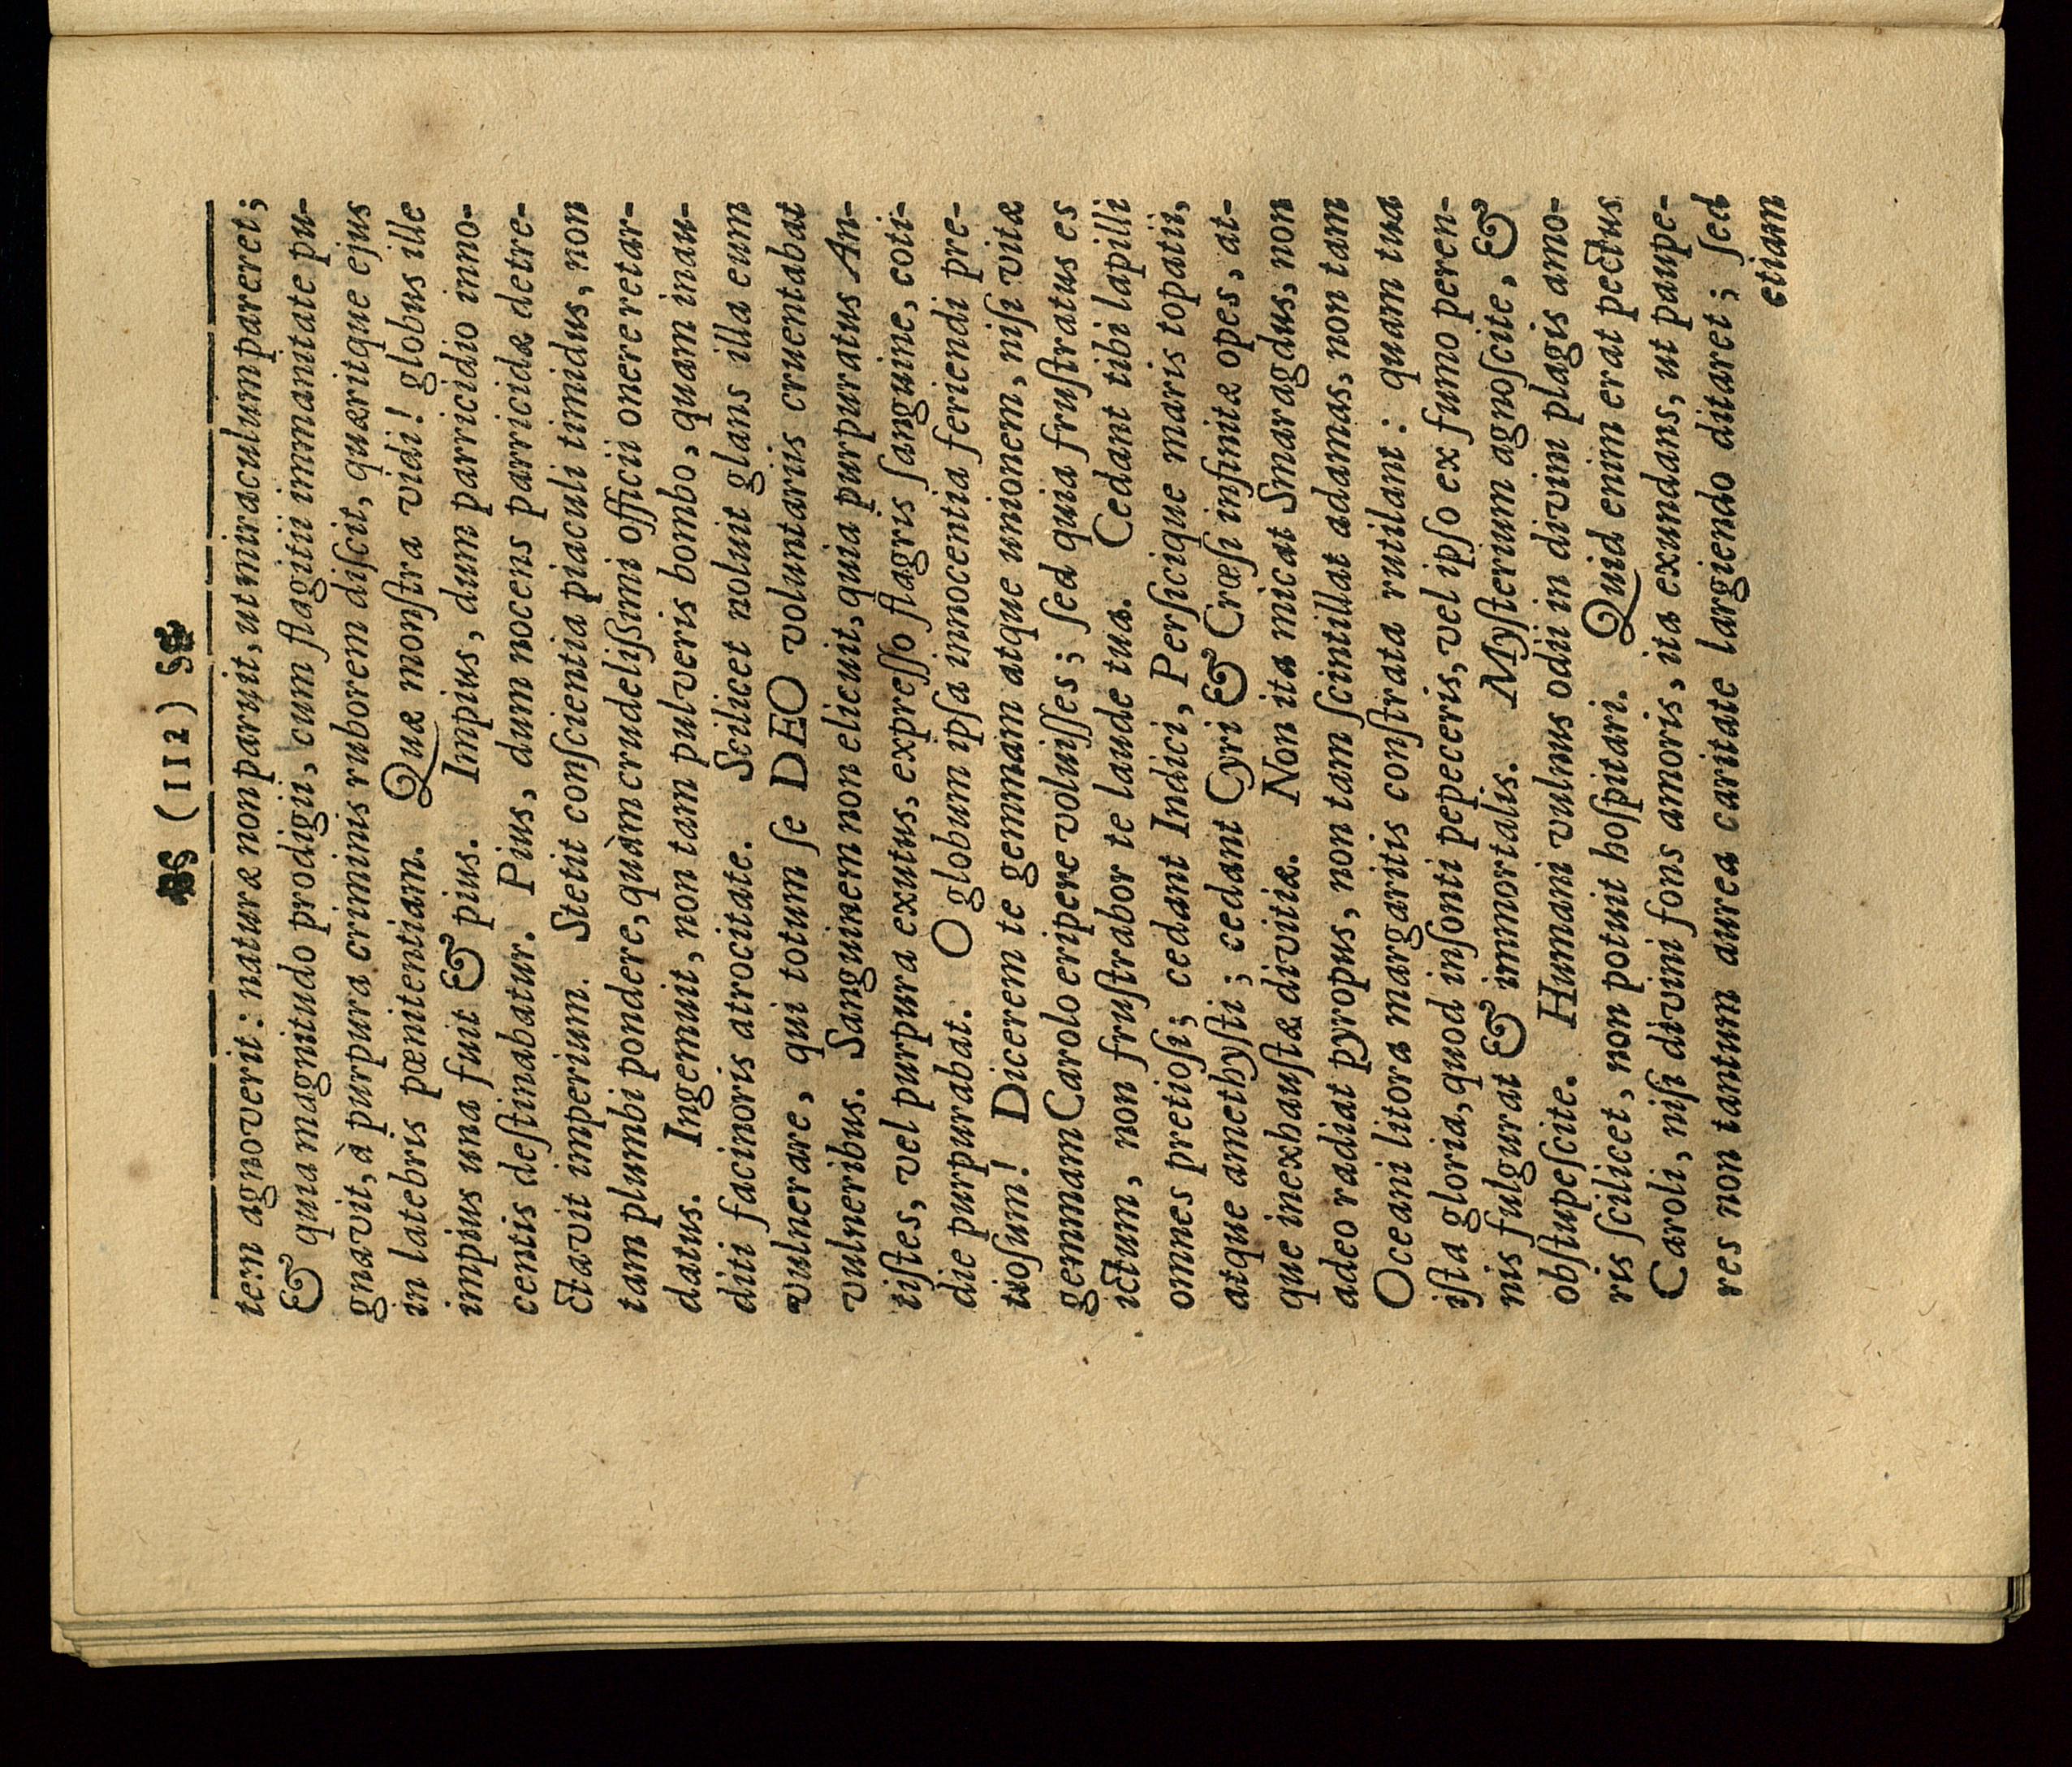 (112)
tem agnoverit: naturæ non paruit, ut miraculum pareret;
& quia magnitudo prodigii, cum flagitii immanitate pu-
gnavit, à purpura criminis ruborem diſcit, quæritque ejus
in latebris pœnitentiam. Quæ monſtra vidi! globus ille
impius una fuit & pius. Impius, dum parricidio inno-
centis deſtinabatur. Pius, dum nocens parricidæ detre-
ctavit imperium. Stetit conſcientia piaculi timidus, non
tam plumbi pondere, quàm crudelißimi officii onere retar-
datus. Ingemuit, non tam pulveris bombo, quam inau-
diti facinoris atrocitate. Scilicet noluit glans illa eum
vulnerare, qui totum ſe DEO voluntariis cruentabat
vulneribus. Sanguinem non elicuit, quia purpuratus An-
tiſtes, vel purpura exutus, expreſſo flagris ſanguine, coti-
die purpurabat. O globum ipſa innocentia feriendi pre-
tioſum! Dicerem te gemmam atque unionem, niſi vitæ
gemmam Carolo eripere voluiſſes; ſed quia fruſtratus es
ictum, non fruſtrabor te laude tua. Cedant tibi lapilli
omnes pretioſi; cedant Indici, Perſicique maris topatii,
atque amethyſti; cedant Cyri & Crœſi infinitæ opes, at-
que inexhauſtæ divitiæ. Non ita micat Smaragdus, non
adeo radiat pyropus, non tam ſcintillat adamas, non tam
Oceani litora margaritis conſtrata rutilant: quam tua
iſta gloria, quod inſonti pepeceris, vel ipſo ex fumo peren-
nis fulgurat & immortalis. Myſterium agnoſcite, &
obſtupeſcite. Humani vulnus odii in divini plagis amo-
ris ſcilicet, non potuit hoſpitari. Quid enim erat pectus
Caroli, niſi divini fons amoris, ita exundans, ut paupe-
res non tantum aurea caritate largiendo ditaret; ſed
etiam